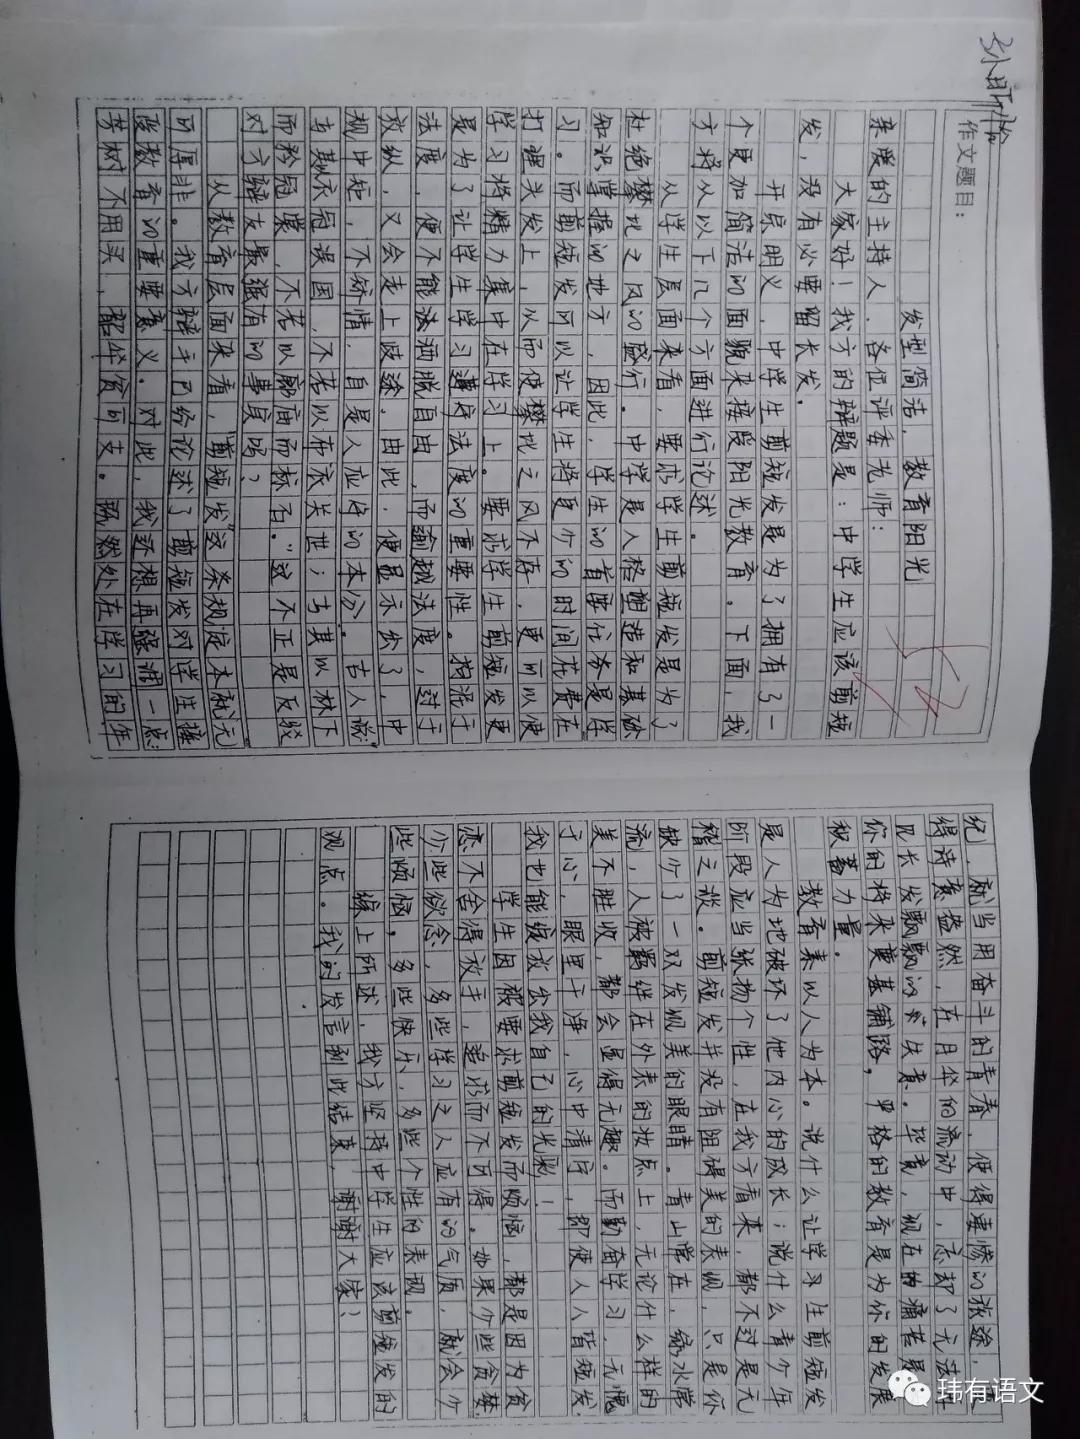 作文题目:
发型简洁,教育阳光
亲爱的主持人、各位评委老师:
大家好!我方的辩题是:中学生应该剪短
发,没有必要留长发。
开宗明义,中学生剪短发是为了拥有了一
个更加简洁的面貌来接受阳光教育。下面,我
方将从以下几个方面进行论述。
从学生层面来看,要求学生剪短发是为了
杜绝攀比之风的盛行。中学是人格塑造和基础
知识掌握的地方,因此,学生的首要任务是学
习。而剪短发可以让学生将更少的时间花费在
打理头发上,从而使攀比之风不存,更可以使
学习将精力集中在学习上。要求学生剪短发更
是为了让学生学习遵序法度的重要性。拘泥于
法度,便不能法洒脱自由,而逾越法度,过于
放纵,又会走上歧途。由此,便显示出了,中
规中矩,不矫情,自是人应持的本分。古人谈"
与其衣冠误国,不若以布衣关世;与其以林下
而矜冠裳,不若以廊庙而标
石。"这不正是反驳
对方辩友最强有的事真吗?
从教育层面来看,"剪短发"这条规定本就无
可厚非。我方辩手已给论述了剪短发对学生接
受教育的重要意义。对此,我还想再强调一点:
芳树不用买,韶华贫可支。既然处在学习的年
纪,就当用奋斗的青春,使得凄惨的旅途,变
得诗意盎然,在月华的流动中,忘却了无法再
见长发飘飘的失意。毕竟,现在的痛苦是
你的将来奠基铺路,严格的教育是为你的发展
积蓄力量。
教育素以人为本。说什么让学习生剪短发
是人为地破坏了他内心的成长;说什么青少年
阶段应当张扬个性,在我方看来,都不过是无
稽之谈。剪短发并没有阻碍美的表现,只是你
缺少了一双发现美的眼睛。青山常在,绿水常
流,人被羁绊在外表的妆点上,无论什么样的
美不胜收,都会显得无趣。而勤奋学习,无愧
于心,眼里干净,心中清宁,即使人人皆短发,
我也能绽放出我自己的光彩!
学生因被要求剪短发而烦恼,都是因为贪
恋不舍得放手,追求而不可得。如果少些贪婪,
少些欲念,多些学习之人应有的气质,就会少
些烦恼,多些快乐,多些个性的表现。
综上所述,我方坚持中学生应该剪短发的
观点。我的发言到此结束,谢谢大家!
玮有语文